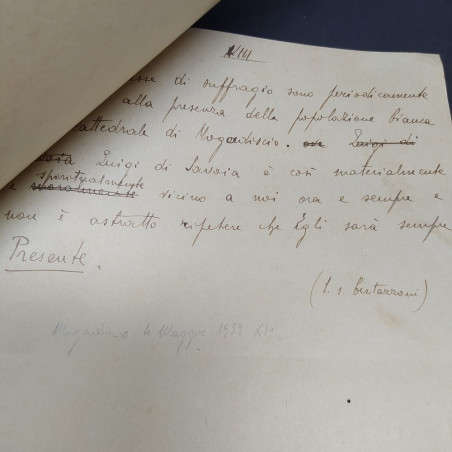 XIII
esse di suffragio sono periodicamente
alla presenza della popolazione bianca
attedrale di Mogadiscio. ove Luigi di
Savoia Luigi di Savoia è così materialmente
spiritualmente
e moralmente vicino a noi ora e sempre e
non è astratto ripetere che Egli sarà sempre
Presente.
(l. s. bertazzoni)
Maggio 1939